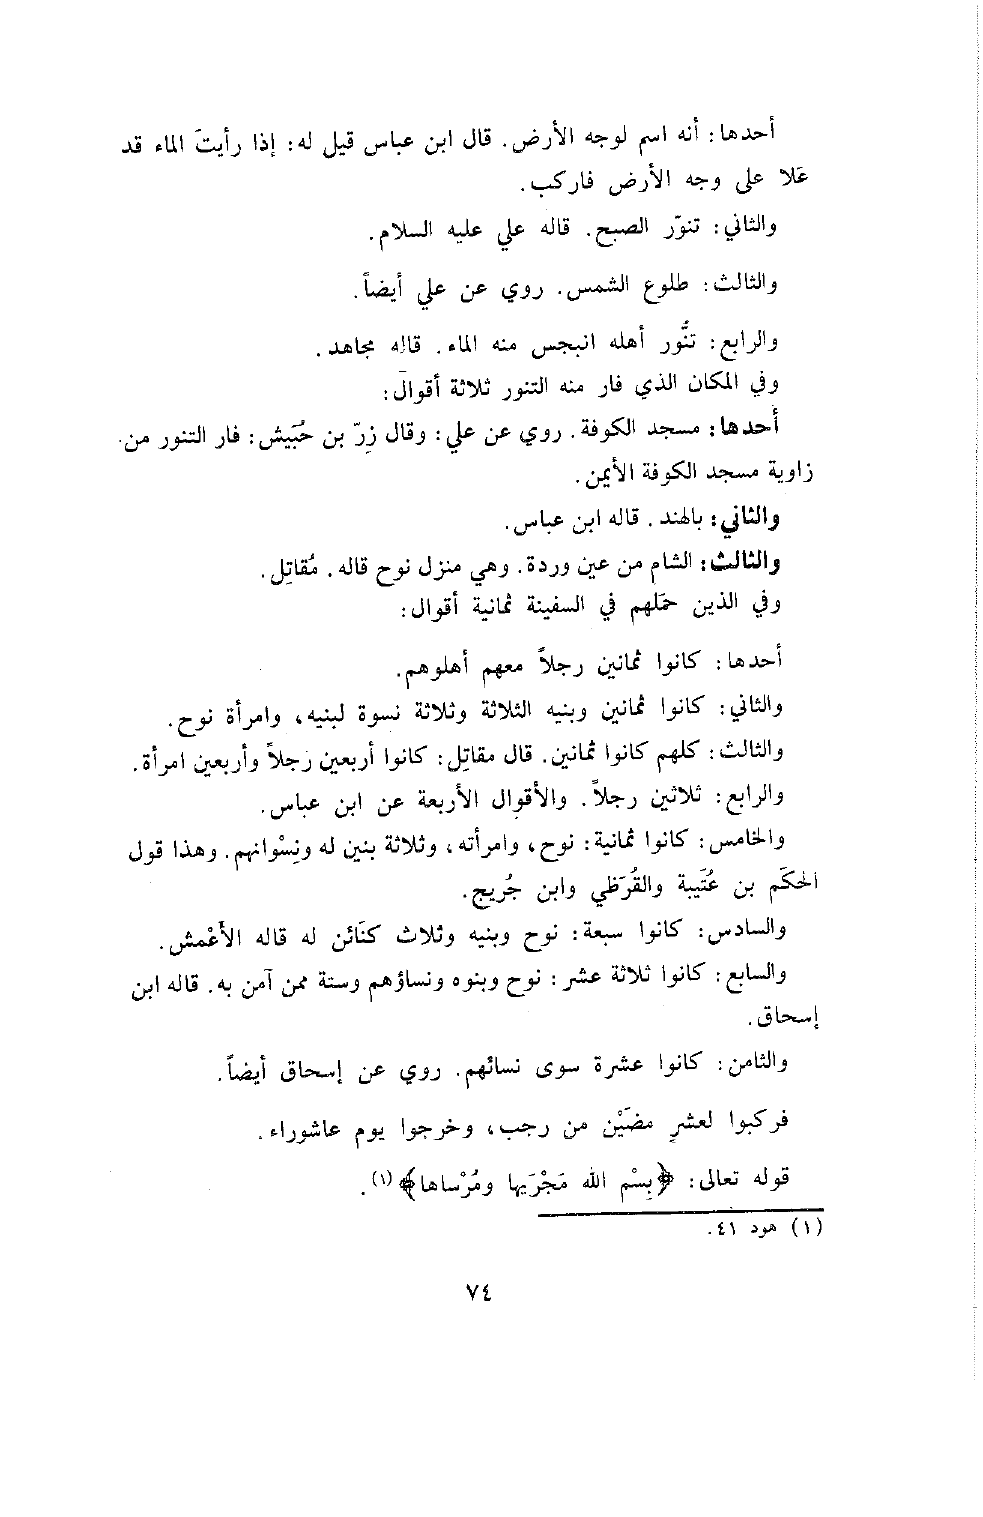 أحدها: أنه اسم لوجه الأرض. قال ابن عباس قيل له: إذا رأيتَ الماء قد
عَلا على وجه الأرض فاركب.
والثاني: تنوّر الصبح. قاله علي عليه السلام.
والثالث: طلوع الشمس. روي عن علي أيضاً.
والرابع: تنُّور أهله انبجس منه الماء. قاله مجاهد.
وفي المكان الذي فار منه التنور ثلاثة أقوال:
أحدها: مسجد الكوفة. روي عن علي: وقال زِرّ بن حُبَيش: فار التنور من
زاوية مسجد الكوفة الأيمن.
والثاني: بالهند. قاله ابن عباس.
والثالث: الشام من عين وردة. وهي منزل نوح قاله. مُقاتِل.
وفي الذين حمَلهم في السفينة ثمانية أقوال:
أحدها: كانوا ثمانين رجلاً معهم أهلوهم.
والثاني: كانوا ثمانين وبنيه الثلاثة وثلاثة نسوة لبنيه، وامرأة نوح.
والثالث: كلهم كانوا ثمانين. قال مقاتِل: كانوا أربعين رجلاً وأربعين امرأة.
والرابع: ثلاثين رجلاً. والأقوال الأربعة عن ابن عباس.
والخامس: كانوا ثمانية: نوح، وامرأته، وثلاثة بنين له ونِسْوانهم. وهذا قول
الحكَم بن عُتَيبة والقُرَظي وابن جُريج.
والسادس: كانوا سبعة: نوح وبنيه وثلاث كنَائن له قاله الأَعْمش.
والسابع: كانوا ثلاثة عشر: نوح وبنوه ونساؤهم وستة ممن آمن به. قاله ابن
إسحاق.
والثامن: كانوا عشرة سوى نسائهم. روي عن إسحاق أيضاً.
فركبوا لعشرٍ مضَيْن من رجب، وخرجوا يوم عاشوراء.
قوله تعالى: ﴿بِسْمِ الله مَجْرَيها ومُرْساها﴾(١).
(١) هود ٤١.
٧٤